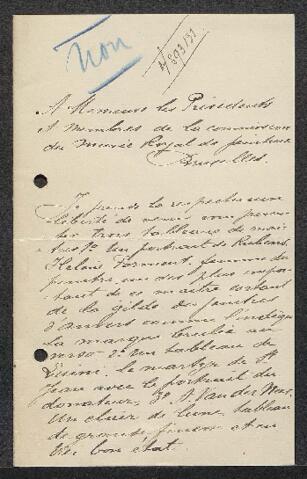 non
A Messieurs les Présidents
et membres de la commission
du Musée Royal de peinture
Bruxelles.
Je prends la respectueuse
liberté de venir vous presen
ter trois tableaux de mai
tres 1o un portrait de Rubens
Helene Forment, femme du
peintre, un des plus impor
tant de ce maître sortant
de la gilde des peintres
d'Anvers comme l'indique
la marque brulée au
verso. 2o un tableau de
le martyr de St
Jean avec le portrait du
donateur, 3o A. Van der Neer
Un clair de lune, tableau
de grande finesse et en
tres bon état.